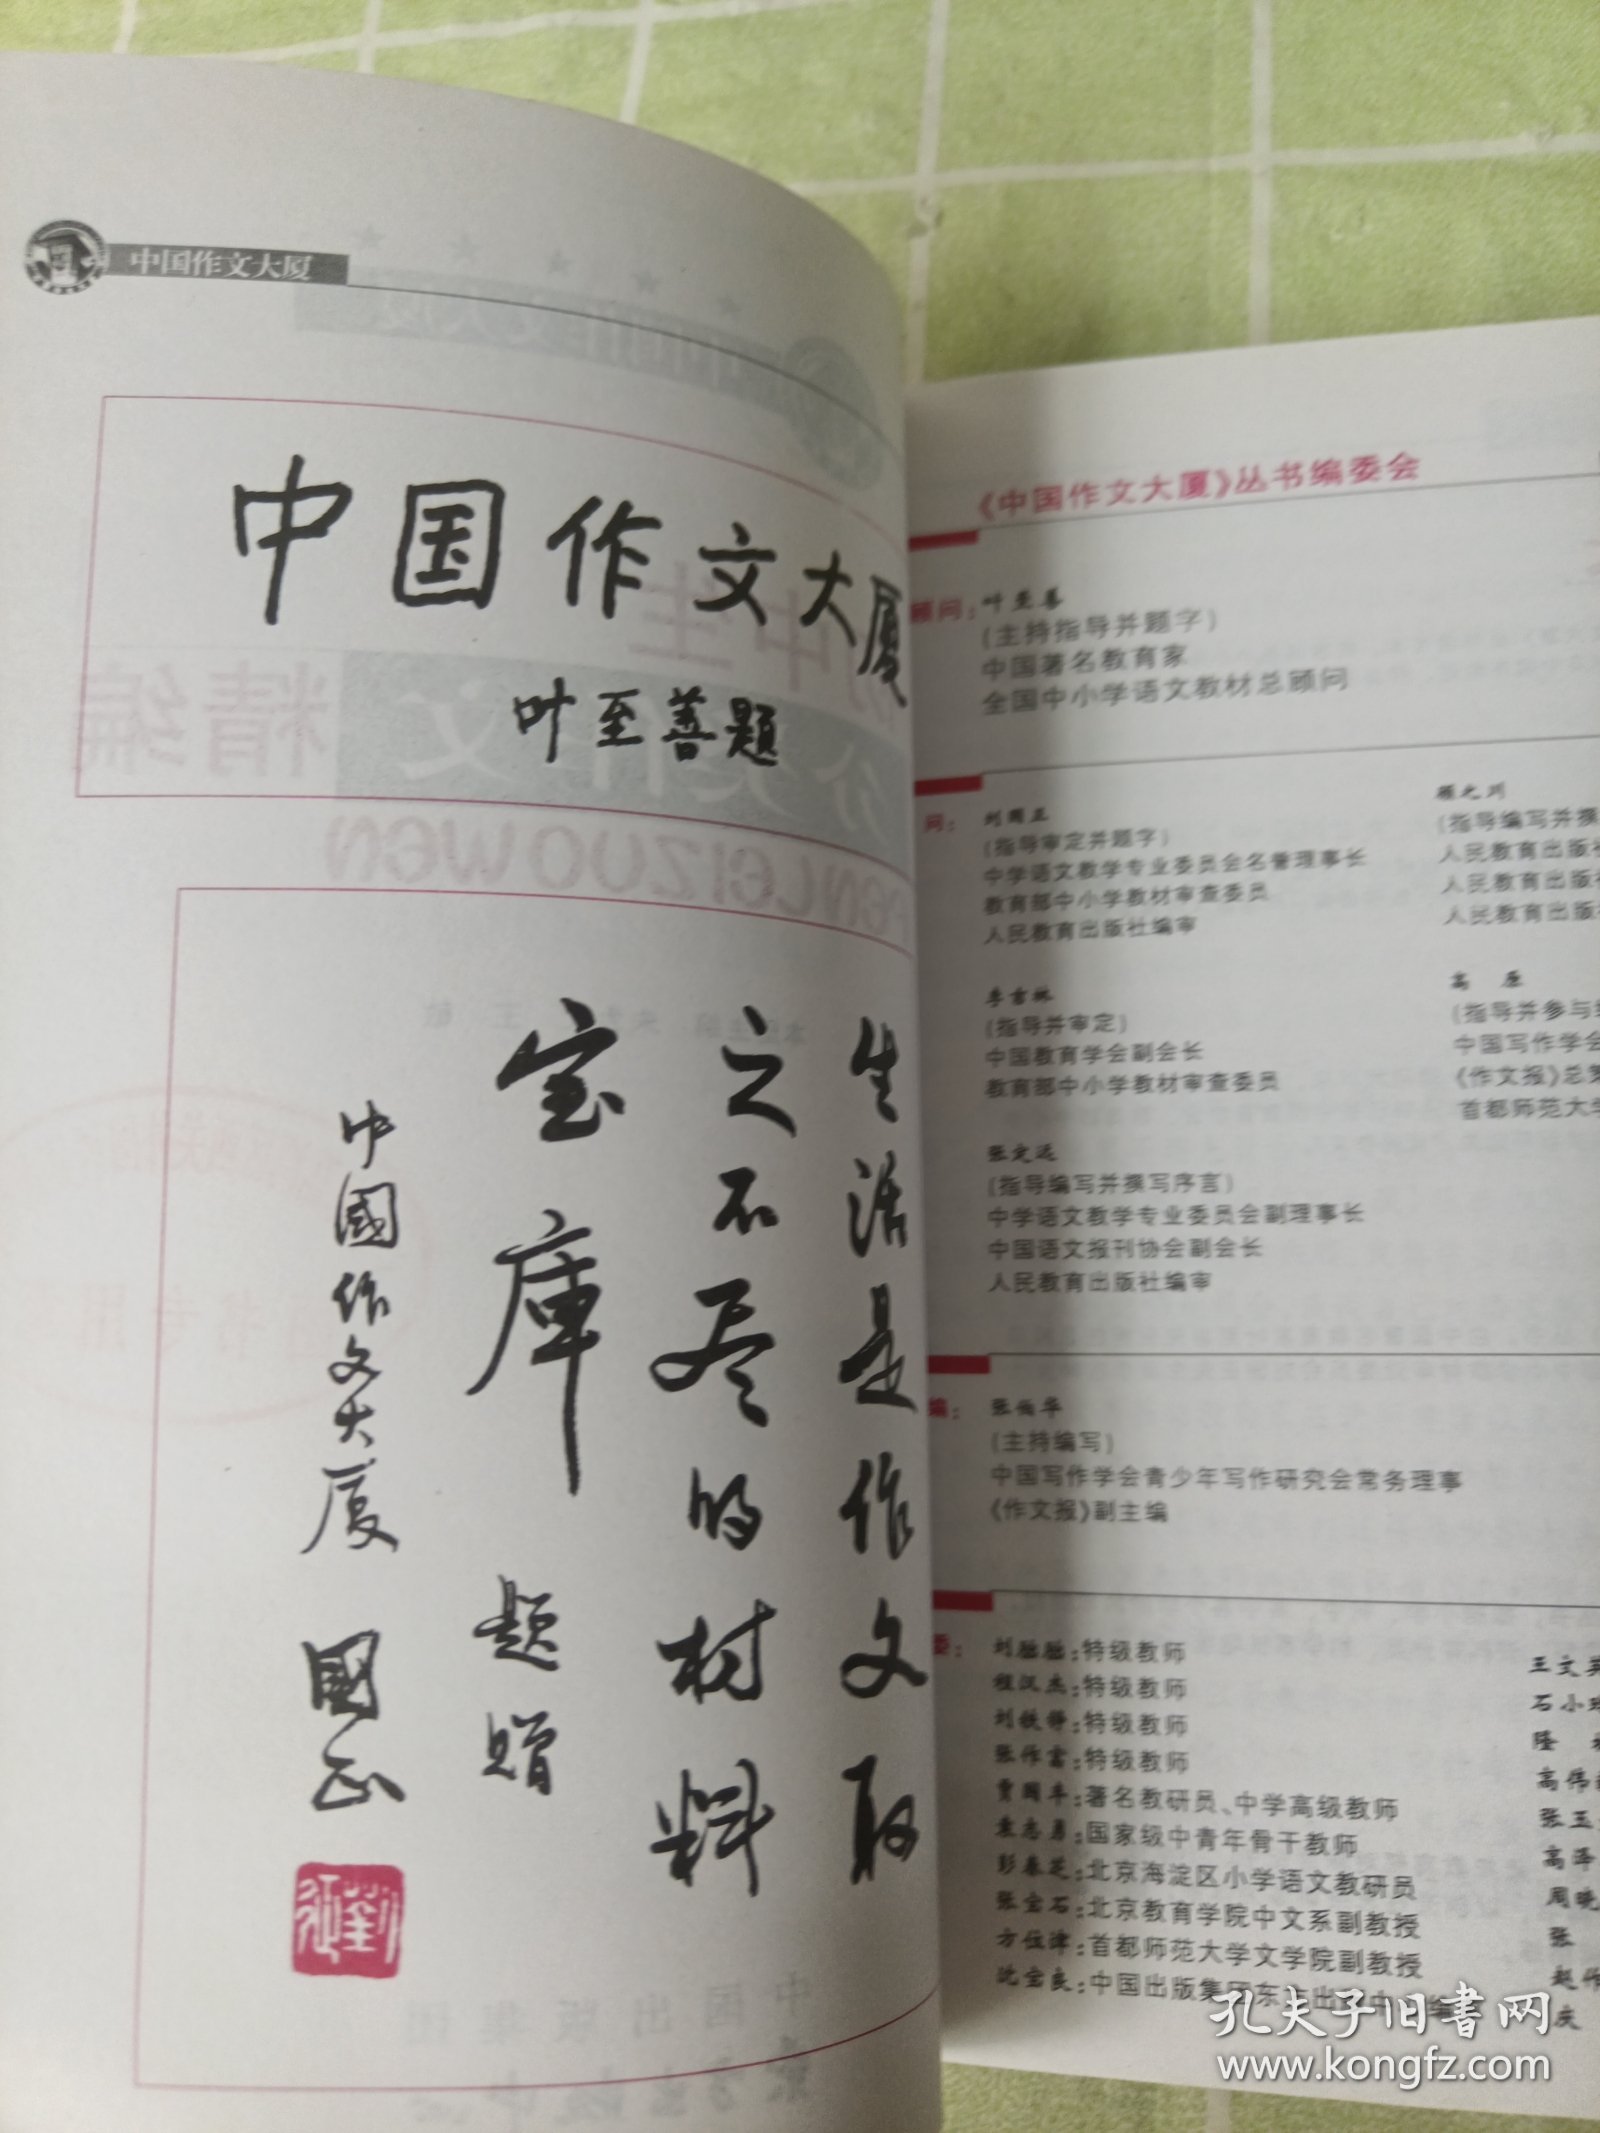 中国作文大厦
中国作文大厦
叶至善题
生活是作文取
之不尽的材料
宝庫
题赠
中國作文大厦
國正
《中国作文大厦》丛书编委会
顾问：叶至善
(主持指导并题字)
中国著名教育家
全国中小学语文教材总顾问
问：刘国正
(指导审定并题字)
中学语文教学专业委员会名誉理事长
教育部中小学教材审查委员
人民教育出版社编审
顾之川
(指导编写并撰
人民教育出版社
人民教育出版社
人民教育出版社
李吉林
(指导并审定)
中国教育学会副会长
教育部中小学教材审查委员
高 原
(指导并参与
中国写作学会
《作文报》总
首都师范大学
张定远
(指导编写并撰写序言)
中学语文教学专业委员会副理事长
中国语文报刊协会副会长
人民教育出版社编审
编：
(主持编写)
中国写作学会青少年写作研究会常务理事
《作文报》副主编
委：
特级教师
程汉杰：特级教师
特级教师
张作富：特级教师
贾国丰：著名教研员、中学高级教师
袁志勇：国家级中青年骨干教师
彭春芝：北京海淀区小学语文教研员
张宝石：北京教育学院中文系副教授
方位津：首都师范大学文学院副教授
沈宝良：中国出版集团东方出版中心编
王文英
石小
隆
高伟
张玉
高泽
周晓
张
赵
庆
孔夫子旧书网
www.kongfz.com